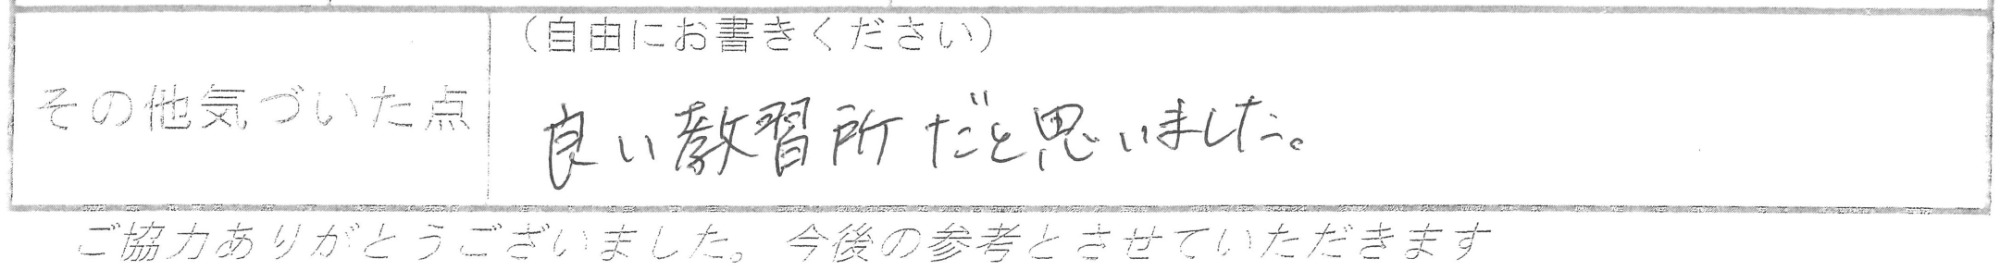 (自由にお書きください)
その他気づいた点
良い教習所だと思いました。
ご協力ありがとうございました。今後の参考とさせていただきます